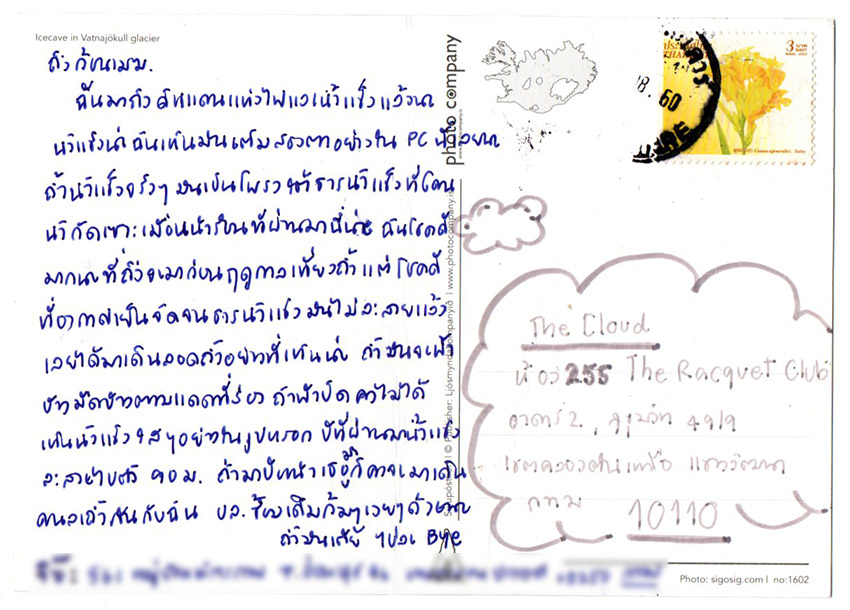 Icecave in Vatnajökull glacier
ถึง ก้อนเมฆ.
ฉันมาถึง ดินแดนแห่งไฟและน้ำแข็งแล้วนะ
น้ำแข็งน่ะฉันเห็นมันเต็มสองตาอย่างใน PC
ถ้ำน้ำแข็งจริงๆ มันเป็นโพรงใต้ธารน้ำแข็งที่โดน
น้ำกัดเซาะเมื่อหน้าร้อนที่ผ่านมานี่น่ะ ฉันโชคดี
มากนะที่ถึงจะมาก่อนฤดูกาลเที่ยวถ้ำ แต่โชคดี
ที่อากาศเย็นจัดจนธารน้ำแข็งมันไม่ละลายแล้ว
เลยได้มาเดินลอดถ้ำอย่างที่เห็นน่ะ ถ้ำมันจะฟ้า
บ้างมืดบ้างตามแดดที่ร้อง ถ้าฟ้าปิด คงไม่ได้
เห็นน้ำแข็งใสๆอย่างในรูปหรอก ปีที่ผ่านมาน้ำแข็ง
ละลายไปตั้ง 90 ม. ถ้ามาปีหน้าเธอก็คงจะมาเดิน
คนละถ้ำกันกับฉัน ปล.
Bye
photo company
www.photocompany.is
3
บาท
60
The Cloud
ห้อง 255 The Racquet Club
อาคาร 2, สุขุมวิท 49/9
เขตคลองตันเหนือ แขวงวัฒนา
กทม 10110
Photo: sigosig.com | no:1602